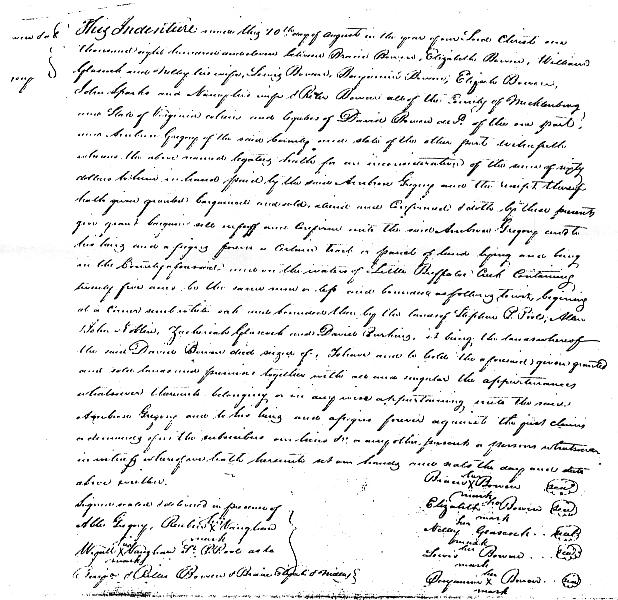 This Indenture made this 10th day of August in the year of our Lord Christ one
thousand eight hundred and eleven between Bowen, Elizabeth Bowen, William
Glascock and Nelley his wife, Lewis Bowen, Benjamin Bowen, Elizah Bowen,
John Sparks and Nancy his wife & Bowen all of the County of Mecklenburg
and State of Virginia and legatees of David Bowen decd. of the one part,
and Ambrose Gregory of the said County and state of the other part witnesseth
whereas the above named legatees hath for an in consideration of the sum of
dollars to them in hand paid by the said Ambrose Gregory and the receipt thereof
hath given granted bargained and sold, and Confirmed & doth by these presents
give grant bargain sell and Confirm unto the said Ambrose Gregory and to
his heirs and assigns forever a Certain tract or parcel of land lying and being
in the County aforesaid and on the waters of Little Buffaloe Creek Containing
twenty five acres be the same more or less and bounded as followeth towit, begining
at a corner white oak and bounded then by the lands of Stephen P. Pool, Allen
& John Noblin, Zachariah Glascock and David it being the land whereof
the said David Bowen died seized of, To have and to hold the aforesaid given granted
and sold land and premises together with all and singular the appurtenances
whatsoever thereunto belonging or in any wise appertaining unto the said
Ambrose Gregory and to his heirs and assigns forever against the just claims
or demands of us the subscribers our heirs &c or any other person or persons whatsoever
in witness whereof we hath hereunto set our hands and seals the day and date
above written.
Bowen seal
her mark
Elizabeth Bowen seal
her mark
Signed sealed & delivered in presence of
Able Gregory, Reubin Vaughan
mark
Nelley Glascock seal
mark
Vaughan St. P. Pool as to
mark
Lewis his Bowen seal
& Bowen &
Benjamin his X Bowen seal
mark